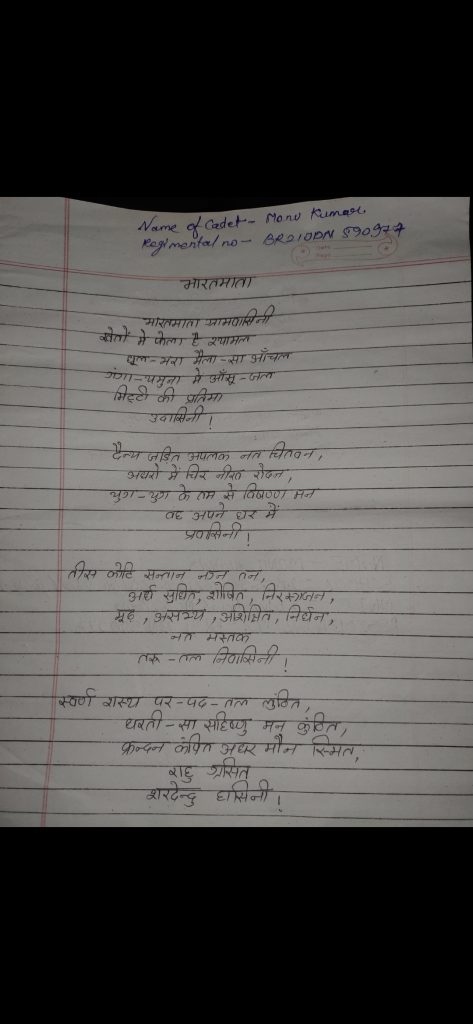 Name of Cadet - Monu Kumar.
Regimental no - BR21SDN 590977
भारतमाता
भारतमाता ग्रामवासिनी
खेतों में फैला है श्यामल
धूल-भरा मैला-सा आँचल
गंगा-यमुना में आँसू-जल
मिट्टी की प्रतिमा
उदासिनी!
दैन्य जड़ित अपलक नत चितवन,
अधरों में चिर नीरव रोदन,
युग-युग के तम से विषण्ण मन
वह अपने घर में
प्रवासिनी!
तीस कोटि सन्तान नग्न तन,
अर्ध क्षुधित, शोषित, निरस्त्रजन,
मूढ़, असभ्य, अशिक्षित, निर्धन,
नत मस्तक
तरू-तल निवासिनी!
स्वर्ण शस्य पर-पद-तल लुंठित,
धरती-सा सहिष्णु मन कुंठित,
क्रन्दन कंपित अधर मौन स्मित,
राहु ग्रसित
शरदेन्दु हासिनी!